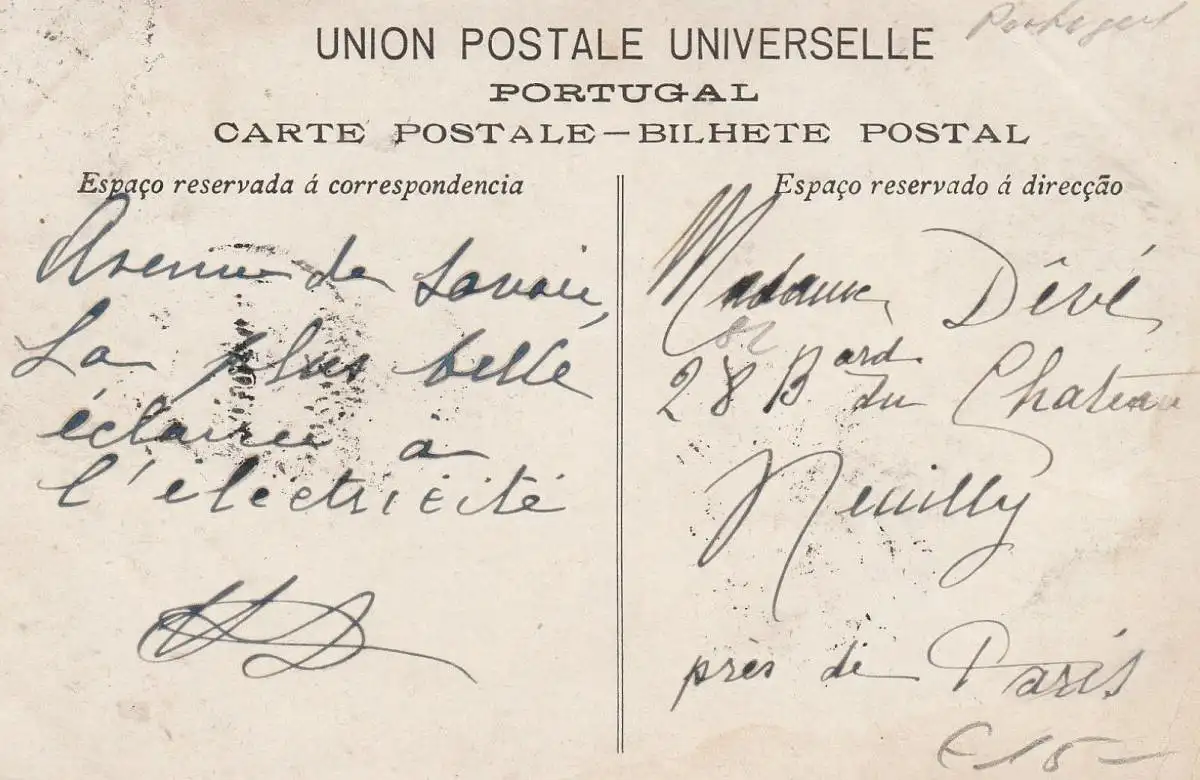 Portugal
UNION POSTALE UNIVERSELLE
PORTUGAL
CARTE POSTALE — BILHETE POSTAL
Espaço reservada á correspondencia
Avenue de Savoie,
La plus belle
éclairée à
l'électricité
Espaço reservado á direcção
Madame Dêvé
28 Bard du Chateau
Neuilly
près de Paris
€ 15 -